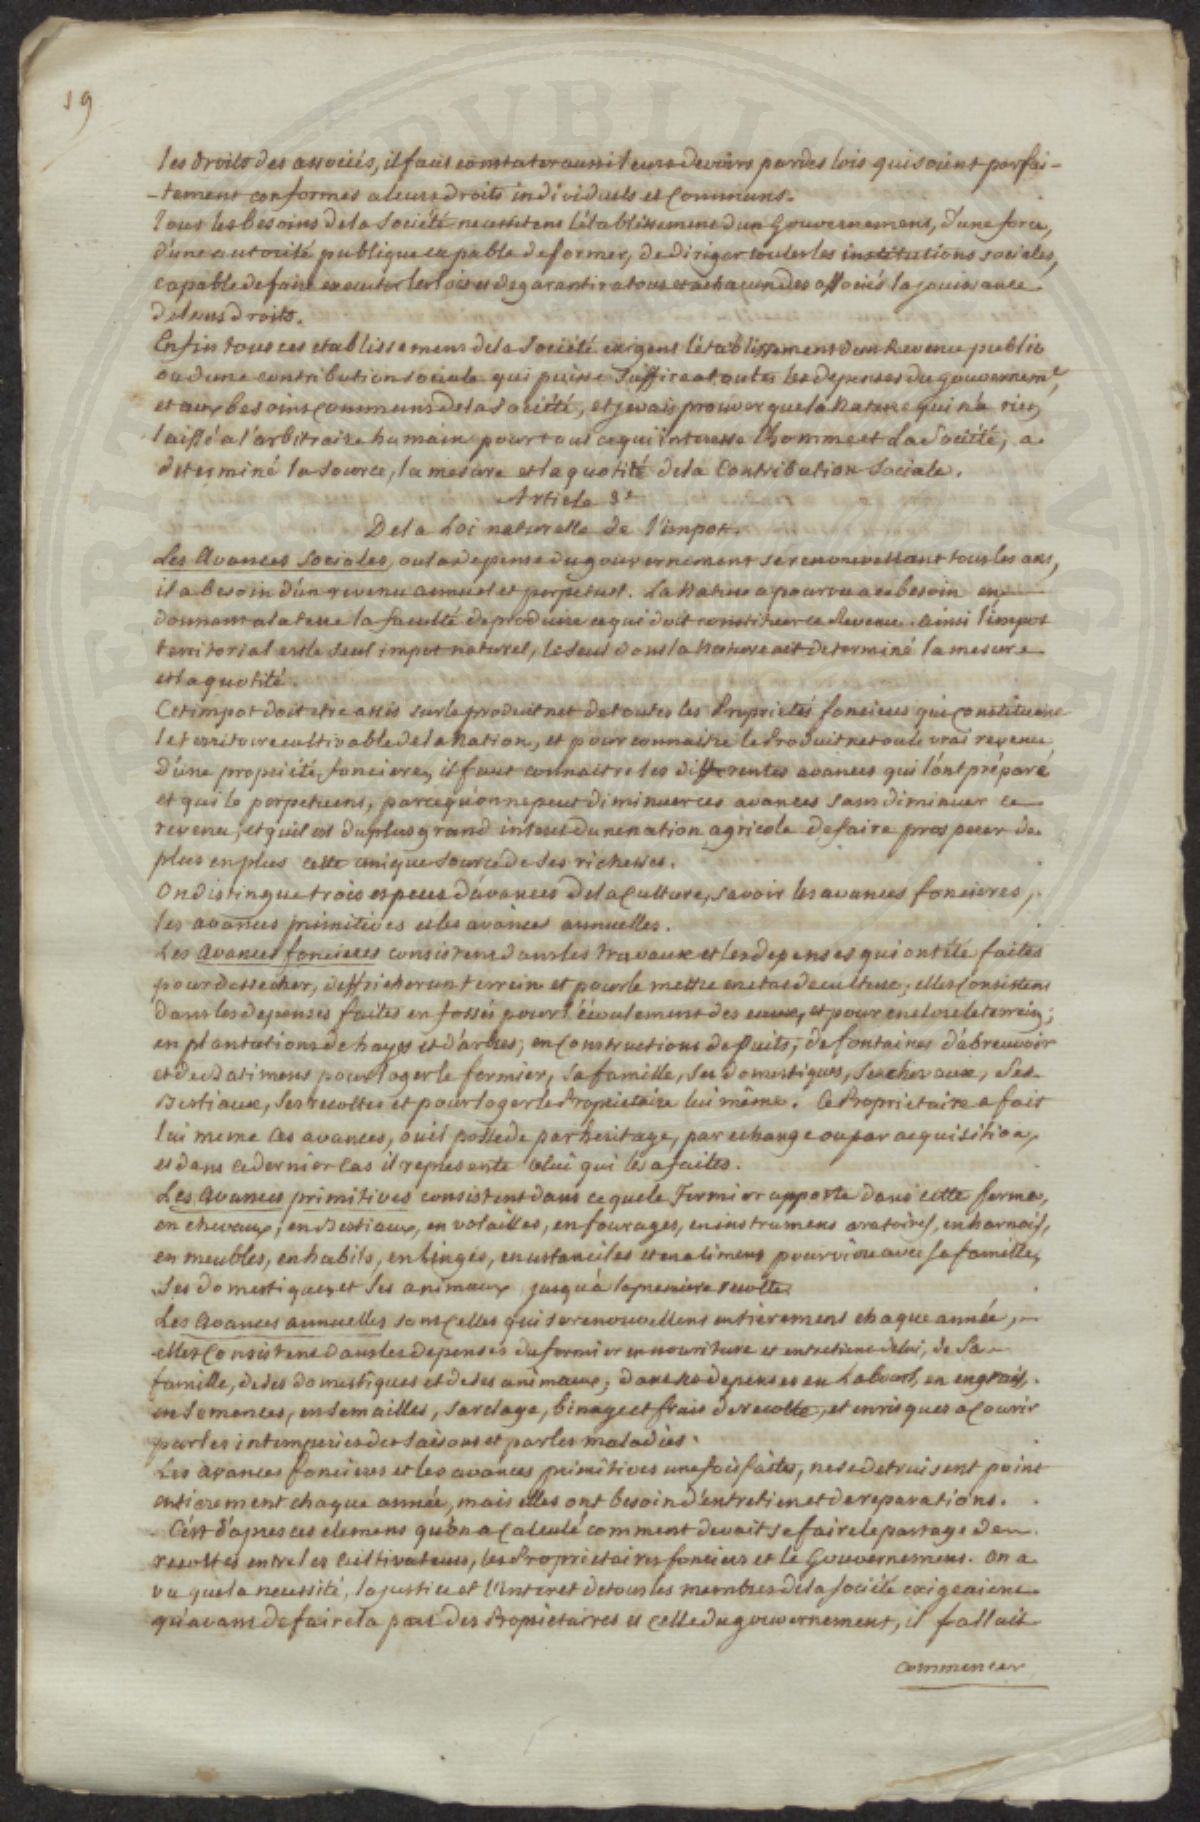 19
les droits des associés, il faut constater aussi leurs devoirs par des lois qui soient parfai-
-tement conformes a leurs droits individuels et communs.
Tous les besoins de la Société necessitent l'établissement d'un Gouvernement, d'une force,
d'une autorité publique capable de former, de diriger toutes les institutions sociales,
capable de faire executer les lois et de garantir a tous et a chacun des associés la jouissance
de leurs droits.
Enfin tous ces etablissemens de la Société exigent l'établissement d'un Revenu public
ou d'une contribution sociale qui puisse suffire a toutes les depenses du gouvernemt,
et aux besoins communs de la Société, et je vais prouver que la Nature qui n'a rien
laissé a l'arbitraire humain pour tout ce qui interesse l'homme et la Société, a
determiné la source, la mesure et la quotité de la Contribution Sociale.
Article 3e
De la Loi naturelle de l'impot.
Les Avances Sociales, ou la depense du gouvernement se renouvellant tous les ans,
il a besoin d'un revenu annuel et perpetuel. La Nature a pourvu a ce besoin en
donnant a la terre la faculté de produire ce qui doit constituer ce Revenu. ainsi l'impot
territorial est le seul impot naturel, le seul dont la Nature ait determiné la mesure
et la quotité.
Cet impot doit etre assis sur le produit net de toutes les Propriétés foncieres qui constituent
le territoire cultivable de la Nation, et pour connaitre le Produit net ou le vrai revenu
d'une propriété fonciere, il faut connaitre les differentes avances qui l'ont préparé
et qui le perpetuent, parce qu'on ne peut diminuer ces avances sans diminuer ce
revenu, et qu'il est du plus grand interet d'une nation agricole de faire prosperer de
plus en plus cette unique source de ses richesses.
On distingue trois especes d'avances de la Culture, savoir les avances foncieres,
les avances primitives et les avances annuelles.
Les Avances foncieres consistent dans les travaux et les depenses qui ont été faites
pour dessecher, deffricher un terrein et pour le mettre en etat de culture; elles consistent
dans les depenses faites en fossés pour l'écoulement des eaux, et pour enclore le terrein;
en plantations de hayes et d'arbres; en constructions de Puits, de fontaines d'abreuvoir
et de Batimens pour loger le fermier, sa famille, ses domestiques, ses chevaux, ses
Bestiaux, ses recoltes et pour loger le Propriétaire lui même. Ce Propriétaire a fait
lui meme ces avances, ou il possede par heritage, par echange ou par acquisition,
et dans ce dernier cas il represente celui qui les a faites.
Les Avances primitives consistent dans ce que le Fermier apporte dans cette ferme,
en chevaux, en Bestiaux, en volailles, en fourages, en instrumens aratoires, en harnois,
en meubles, en habits, en linges, en ustanciles et en alimens pour vivre avec sa famille,
ses domestiques et ses animaux jusqu'à la premiere recolte.
Les Avances annuelles sont celles qui se renouvellent entierement chaque année,
elles consistent dans les depenses du fermier en nourriture et entretien de lui, de sa
famille, de ses domestiques et de ses animaux; dans les depenses en Labours, en engrais,
en semences, en semailles, sarclage, binage et frais de recolte, et en risques a courir
par les intemperies des saisons et par les maladies.
Les Avances foncieres et les avances primitives une fois faites, ne se detruisent point
entierement chaque année, mais elles ont besoin d'entretien et de reparations.
C'est d'apres ces elemens qu'on a calculé comment devait se faire le partage des
recoltes entre les Cultivateurs, les Propriétaires fonciers et le Gouvernement. On a
vu que la necessité, la justice et l'interet de tous les membres de la Société exigeaient
qu'avant de faire la part des Propriétaires et celle du gouvernement, il fallait
commencer